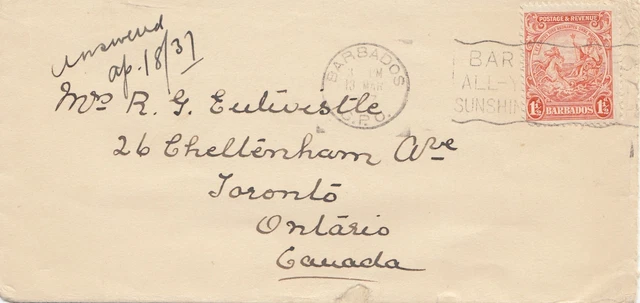 Answered
ap. 18/37
BARBADOS
G.P.O.
BAR
ALL-Y
SUNSHIN
POSTAGE & REVENUE
1½d
BARBADOS
1½d
Mrs R. G. Entwistle
26 Cheltenham Ave
Toronto
Ontario
Canada